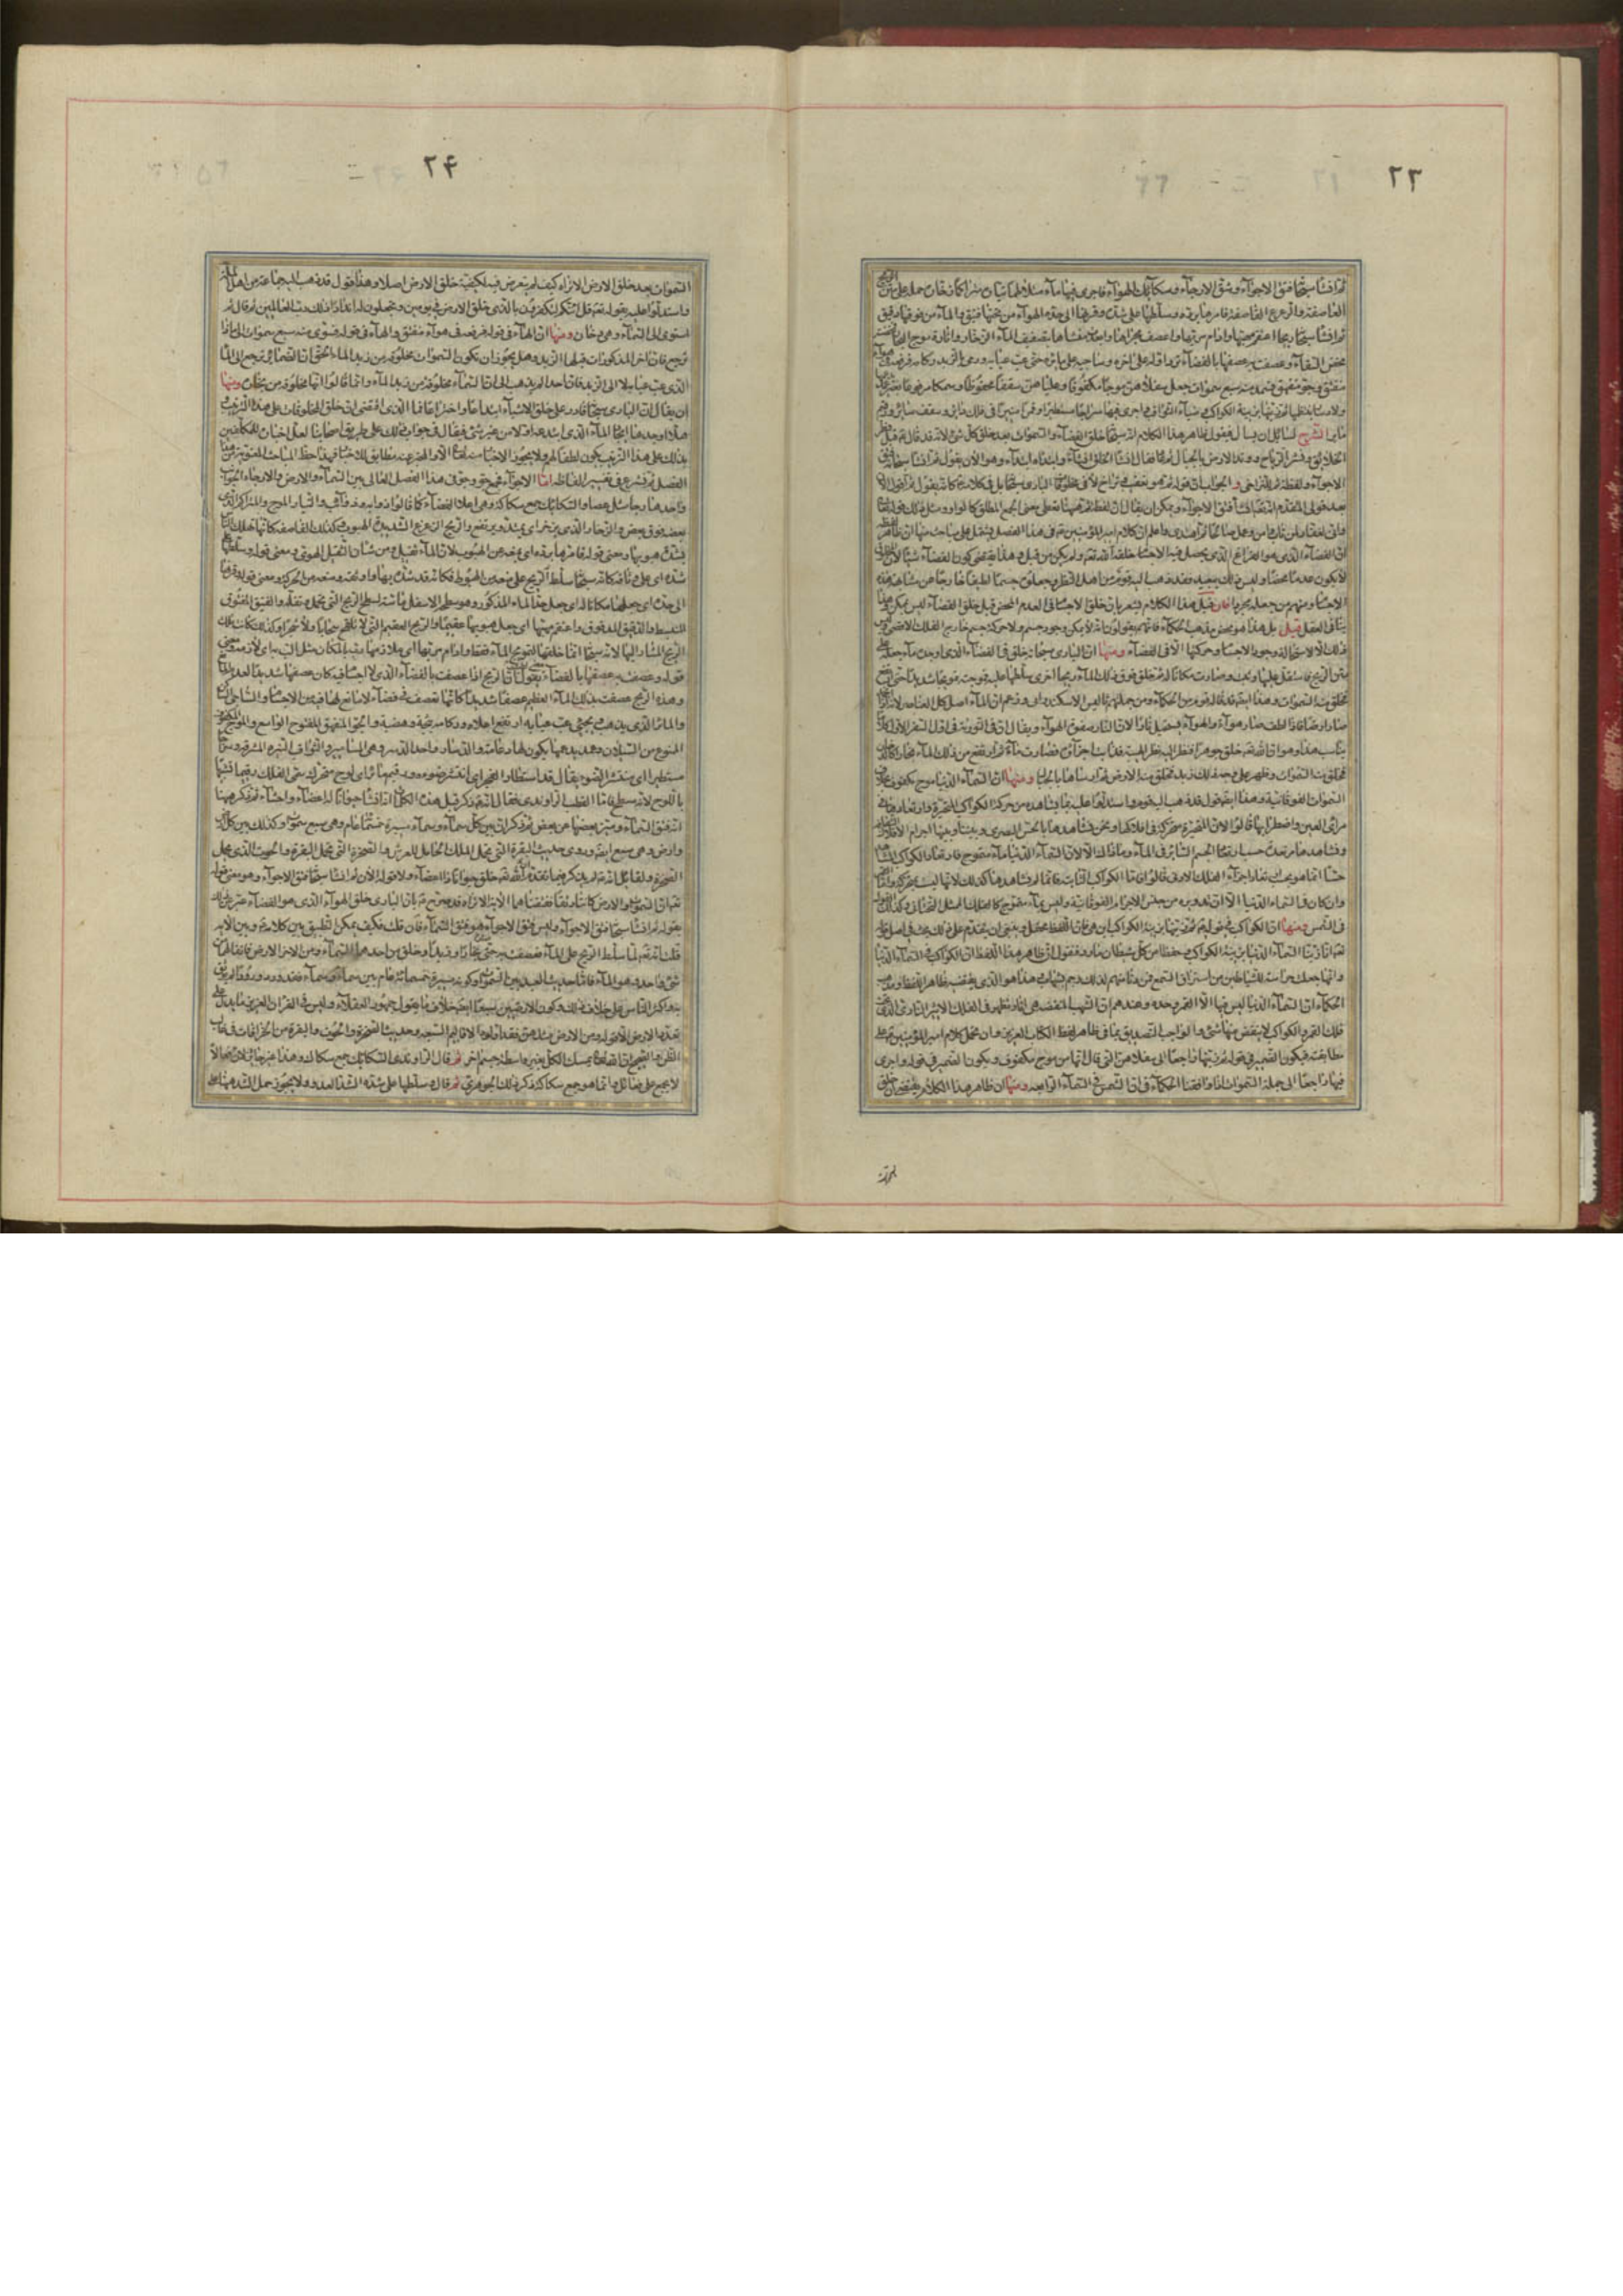 ٢٣
ثم انشأ سبحانه فتق الاجوآء وشق الارجآء وسكائك الهوآء فاجرى فيها مآء متلاطما تياره متراكما زخاره حمله على متن الريح
العاصفة والزعزع القاصفة فامرها برده وسلطها على شده وقرنها الى حده الهوآء من تحتها فتيق والمآء من فوقها دفيق
ثم انشأ سبحانه ريحا اعتقم مهبها وادام مربها واعصف مجراها وابعد منشاها فامرها بتصفيق المآء الزخار واثارة موج البحار فمخضته
مخض السقآء وعصفت به عصفها بالفضآء ترد اوله على آخره وساجيه على مائره حتى عب عبابه ورمى بالزبد ركامه فرفعه في هوآء
منفتق وجو منفهق فسوى منه سبع سموات جعل سفلاهن موجا مكفوفا وعلياهن سقفا محفوظا وسمكا مرفوعا بغير عمد
ولا دسار ينتظمها ثم زينها بزينة الكواكب وضيآء الثواقب فاجرى فيها سراجا مستطيرا وقمرا منيرا في فلك دائر وسقف سائر ورقيم
مائر الشرح لسائل ان يسأل فيقول ظاهر هذا الكلام انه سبحانه خلق الفضآء والسموات بعد خلق كل شئ لانه قد قال قبل فطر
الخلايق ونشر الرياح ووتد الارض بالجبال ثم عاد فقال انشأ الخلق انشآء وابتدأه ابتدآء وهو الآن يقول ثم انشأ سبحانه فتق
الاجوآء ولفظة ثم للتراخى والجواب ان قوله ثم هو تعقيب وتراخ لا في مخلوقات البارى سبحانه بل في كلامه كانه يقول ثم اقول الآن
بعد قولى المتقدم انه تعالى انشأ فتق الاجوآء ويمكن ان يقال ان لفظة ثم ههنا تعطى معنى الجمع المطلق كالواو ومثل ذلك قوله تعالى
وانى لغفار لمن تاب وآمن وعمل صالحا ثم اهتدى واعلم ان كلام امير المؤمنين في هذا الفصل يشتمل على مباحث منها ان ظاهر لفظه
ان الفضآء الذى هو الفراغ الذى يحصل فيه الاجسام خلقه الله تعالى ولم يكن من قبل وهذا يقتضى كون الفضآء شيئا لان المخلوق
لا يكون عدما محضا وليس ذلك ببعيد فقد ذهب اليه قوم من اهل النظر وجعلوه جسما لطيفا خارجا عن مشابهة هذه
الاجسام ومنهم من جعله مجردا فان قيل هذا الكلام يشعر بان خلق الاجسام في العدم المحض قبل خلق الفضآء ليس بممكن وهذا
ينافى العقل قيل بل هذا هو محض مذهب الحكمآء فانهم يقولون انه لا يمكن وجود جسم ولا حركة جسم خارج الفلك الاقصى وليس
ذلك الا لاستحالة وجود الاجسام وحركتها الا في الفضآء ومنها ان البارى سبحانه خلق في الفضآء الذى اوجده مآء جعله على
متن الريح فاستقل عليها وثبت وصارت مكانا له ثم خلق فوق ذلك المآء ريحا اخرى سلطها عليه فموجته تمويجا شديدا حتى ارتفع
فخلق منه السموات وهذا ايضا قد قاله قوم من الحكمآء ومن جملتهم ثاليس الاسكندرانى وزعم ان المآء اصل كل العناصر لانه اذا انجمد
صار ارضا فاذا لطف صار هوآء والهوآء يستحيل نارا لان النار صفوة الهوآء ويقال ان في التورية في اول السفر الاول كلاما
يناسب هذا وهو ان الله تعالى خلق جوهرا فنظر اليه نظر الهيبة فذابت اجزآؤه فصارت مآء ثم ارتفع من ذلك المآء بخار كالدخان
فخلق منه السموات وظهر على وجه ذلك زبد فخلق منه الارض ثم ارساها بالجبال ومنها ان السمآء الدنيا موج مكفوف بخلاف
السموات الفوقانية وهذا ايضا قول قد ذهب اليه قوم واستدلوا عليه بما يشاهد من حركة الكواكب المتحيرة وارتعادها في
مرأى العين واضطرابها قالوا لان المتحيرة متحركة في افلاكها ونحن نشاهدها بالحس البصرى وبيننا وبينها اجرام الافلاك الشفافة
ونشاهدها مرتعدة حسب ارتعاد الجسم السائر في المآء وما ذاك الا لان السمآء الدنيا مآء متموج فارتعاد الكواكب المشاهدة
حسا انما هو بحسب ارتعاد اجزآء الفلك الادنى قالوا فاما الكواكب الثابتة فانما لم نشاهدها كذلك لانها ليست بمتحركة واما القمر
وان كان في السمآء الدنيا الا ان فلك تدويره من جنس الاجرام الفوقانية وليس بمآء متموج كالفلك الممثل التحتانى وكذلك القول
في الشمس ومنها ان الكواكب في قوله ثم زينها بزينة الكواكب اين هى فان اللفظ محتمل وينبغى ان يتقدم على ذلك بحث في اصل قوله
تعالى انا زينا السمآء الدنيا بزينة الكواكب وحفظا من كل شيطان مارد فنقول ان ظاهر هذا اللفظ ان الكواكب في السمآء الدنيا
وانها جعلت حراسة للشياطين من استراق السمع فمن دنا منهم لذلك رجم بشهاب وهذا هو الذى يقتضيه ظاهر اللفظ ومذهب
الحكمآء ان السمآء الدنيا ليس فيها الا القمر وحده وعندهم ان الشهب المنقضة هى آثار تظهر في الفلك الاثيرى النارى الذى تحت
فلك القمر والكواكب لا ينقض منها شئ والواجب التصديق بما في ظاهر لفظ الكتاب العزيز وان يحمل كلام امير المؤمنين على
مطابقته فيكون الضمير في قوله زينها راجعا الى سفلاهن التى قال انها موج مكفوف ويكون الضمير في قوله واجرى
فيها راجعا الى جملة السموات اذا وافقنا الحكمآء في ان الشمس في السمآء الرابعة ومنها ان ظاهر هذا الكلام يقتضى ان خلق
٢۴
السموات بعد خلق الارض الا تراه كيف لم يتعرض فيه لكيفية خلق الارض اصلا وهذا قول قد ذهب اليه جماعة من اهل الملة
واستدلوا عليه بقوله تعالى قل ائنكم لتكفرون بالذى خلق الارض في يومين وتجعلون له اندادا ذلك رب العالمين ثم قال ثم
استوى الى السمآء وهى دخان ومنها ان الهآء في قوله فرفعه في هوآء منفتق والهآء في قوله فسوى منه سبع سموات الى ماذا
ترجع فان آخر المذكورات قبلها الزبد وهل يجوز ان يكون السموات مخلوقة من زبد المآء الحق ان الضمائر ترجع الى المآء
الذى عب عبابه لا الى الزبد فان احدا لم يذهب الى ان السمآء مخلوقة من زبد المآء وانما قالوا انها مخلوقة من بخاره ومنها
ان يقال ان البارى سبحانه قادر على خلق الاشيآء ابتداعا واختراعا فما الذى اقتضى ان خلق المخلوقات على هذا الترتيب
وهلا اوجدها ايجاد المآء الذى ابتدعه اولا من غير شئ فيقال في جواب ذلك على طريق اصحابنا لعل اخباره للمكلفين
بذلك على هذا الترتيب يكون لطفا لهم ولا يجوز الاخبار منه تعالى الا والمخبر عنه مطابق للاخبار فهذا حظ المباحث المعنوية من هذا
الفصل ثم نشرع في تفسير الفاظه اما الاجوآء فجمع جو وجو في هذا الفصل العالى بين السمآء والارض والارجآء الجوانب
واحدها رجا مثل عصا والسكائك جمع سكاكة وهى اعلا الفضآء كما قالوا ذوابة وذوائب والتيار الموج والمتراكم الذى
بعضه فوق بعض والزخار الذى يزخر اى يمتد ويرتفع والريح الزعزع الشديدة الهبوب وكذلك القاصفة كانها تهلك الناس
بشدة هبوبها ومعنى قوله فامرها برده اى بمنعه من الهبوط لان المآء ثقيل ومن شان الثقيل الهوى ومعنى قوله وسلطها على
شده اى على وثاقه كانه سبحانه سلط الريح على منعه من الهبوط فكانه قد شده بها واوثقه ومنعه من الحركة ومعنى قوله وقرنها
الى حده اى جعلها مكانا له اى جعل حد المآء المذكور وهو سطحه الاسفل مماسة لسطح الريح التى تحمله وتقله والفتيق المفتوق
المنبسط والدفيق المدفوق واعتقم مهبها اى جعل هبوبها عقيما والريح العقيم التى لا تلقح سحابا ولا شجرا وكذلك كانت تلك
الريح المشار اليها لانه سبحانه انما خلقها لتمويج المآء فقط وادام مربها اى ملازمتها رب بالمكان مثل الب به اى لازمه ومعنى
قوله وعصفت به عصفها بالفضآء فيه معنى لطيف يقول ان الريح اذا عصفت بالفضآء الذى لا اجسام فيه كان عصفها شديدا لعدم المانع
وهذه الريح عصفت بذلك المآء العظيم عصفا شديدا كانها تعصف في فضآء لا مانع لها فيه من الاجسام والساجى الساكن
والمائر الذى يذهب ويجئ وعب عبابه اى ارتفع اعلاه وركامه ثبجه وهضبه والجو المنفهق المفتوح الواسع والموج المكفوف
الممنوع من السيلان وعمد يدعمها يكون لها دعامة والدسار واحد الدسر وهى المسامير والثواقب النيرة المشرقة وسراجا
مستطيرا اى منتشر الضوء يقال قد استطار الفجر اى انتشر ضوءه ورقيم مائر اى لوح متحرك سمى الفلك رقيما تشبيها
باللوح لانه مسطح فاما القطب الراوندى فقال انه ذكر قبل هذه الكلمات انه انشأ حيوانا له اعضآء واحناء ثم ذكر ههنا
انه فتق السمآء وميز بعضها عن بعض ثم ذكر ان بين كل سمآء وسمآء مسيرة خمسمائة عام وهى سبع سموات وكذلك بين كل ارض
وارض وهى سبع ايضا وروى حديث البقرة التى تحمل الملك الحامل للعرش والصخرة التى تحمل البقرة والحوت الذى يحمل
الصخرة ولقائل ان يقول انه لم يذكر فيما تقدم ان الله تعالى خلق حيوانا ذا اعضآء ولا قوله الآن ثم انشأ سبحانه فتق الاجوآء وهو معنى قوله
تعالى ان السموات والارض كانتا رتقا ففتقناهما الا تراه قد صرح بان البارى خلق الهوآء الذى هو الفضآء فعبر عن ذلك
بقوله ثم انشأ سبحانه فتق الاجوآء وليس فتق الاجوآء هو فتق السمآء فان قلت فكيف يمكن التطبيق بين كلامه وبين الآية
قلت انه تعالى لما سلط الريح على المآء فعصفت به حتى جعلته بخارا وزبدا وخلق من احدهما السمآء ومن الآخر الارض كان فاتقا لهما من
شئ واحد وهو المآء فاما حديث البعد بين السموات وكونه مسيرة خمسمائة عام بين سمآء وسمآء فقد ورد ورودا لم يوثق
به واكثر الناس على خلاف ذلك وكون الارض سبعا ايضا خلاف ما يقوله جمهور العقلآء وليس في القرآن العزيز ما يدل على
تعدد الارض الا قوله ومن الارض مثلهن وقد اولوه على الاقاليم السبعة وحديث الصخرة والحوت والبقرة من الخرافات في غالب
الظن والصحيح ان الله تعالى يمسك الكل بغير واسطة جسم آخر ثم قال الراوندى السكائك جمع سكاك وهذا غير جائز لان فعالا
لا يجمع على فعائل وانما هو جمع سكاكة ذكر ذلك الجوهرى ثم قال وسلطها على شده الشد العدو ولا يجوز حمل الشد ههنا على